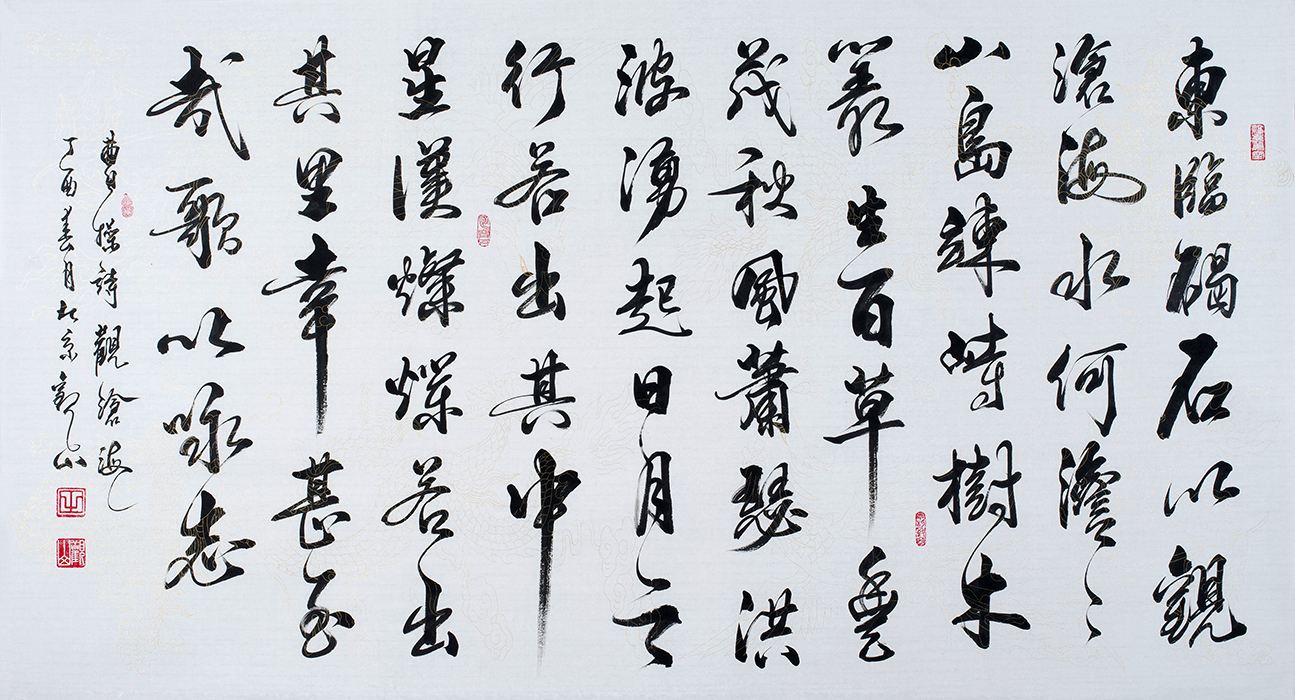 東臨碣石以觀
滄海水何澹〻
山島竦峙樹木
叢生百草豐
茂秋風蕭瑟洪
波湧起日月之
行若出其中
星漢燦爛若出
其里幸甚至
哉歌以咏志
曹操詩觀滄海
丁酉春月北京觀山